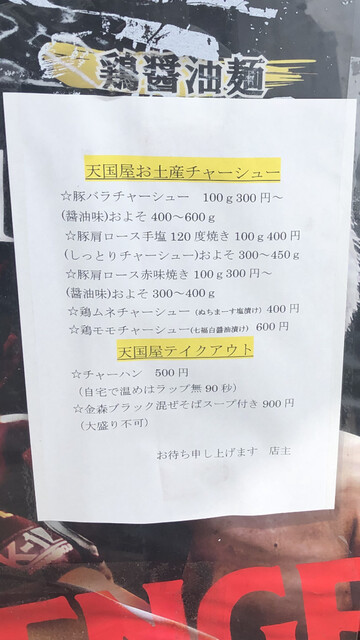 鶏醤油麺
天国屋お土産チャーシュー
☆豚バラチャーシュー 100g300円～
(醤油味)およそ400～600g
☆豚肩ロース手塩120度焼き100g400円
(しっとりチャーシュー)およそ300～450g
☆豚肩ロース赤味焼き100g300円～
(醤油味)およそ300～400g
☆鶏ムネチャーシュー(ぬちまーす塩漬け) 400円
☆鶏モモチャーシュー(七福白醤油漬け) 600円
天国屋テイクアウト
☆チャーハン 500円
(自宅で温めはラップ無90秒)
☆金森ブラック混ぜそばスープ付き900円
(大盛り不可)
お待ち申し上げます 店主